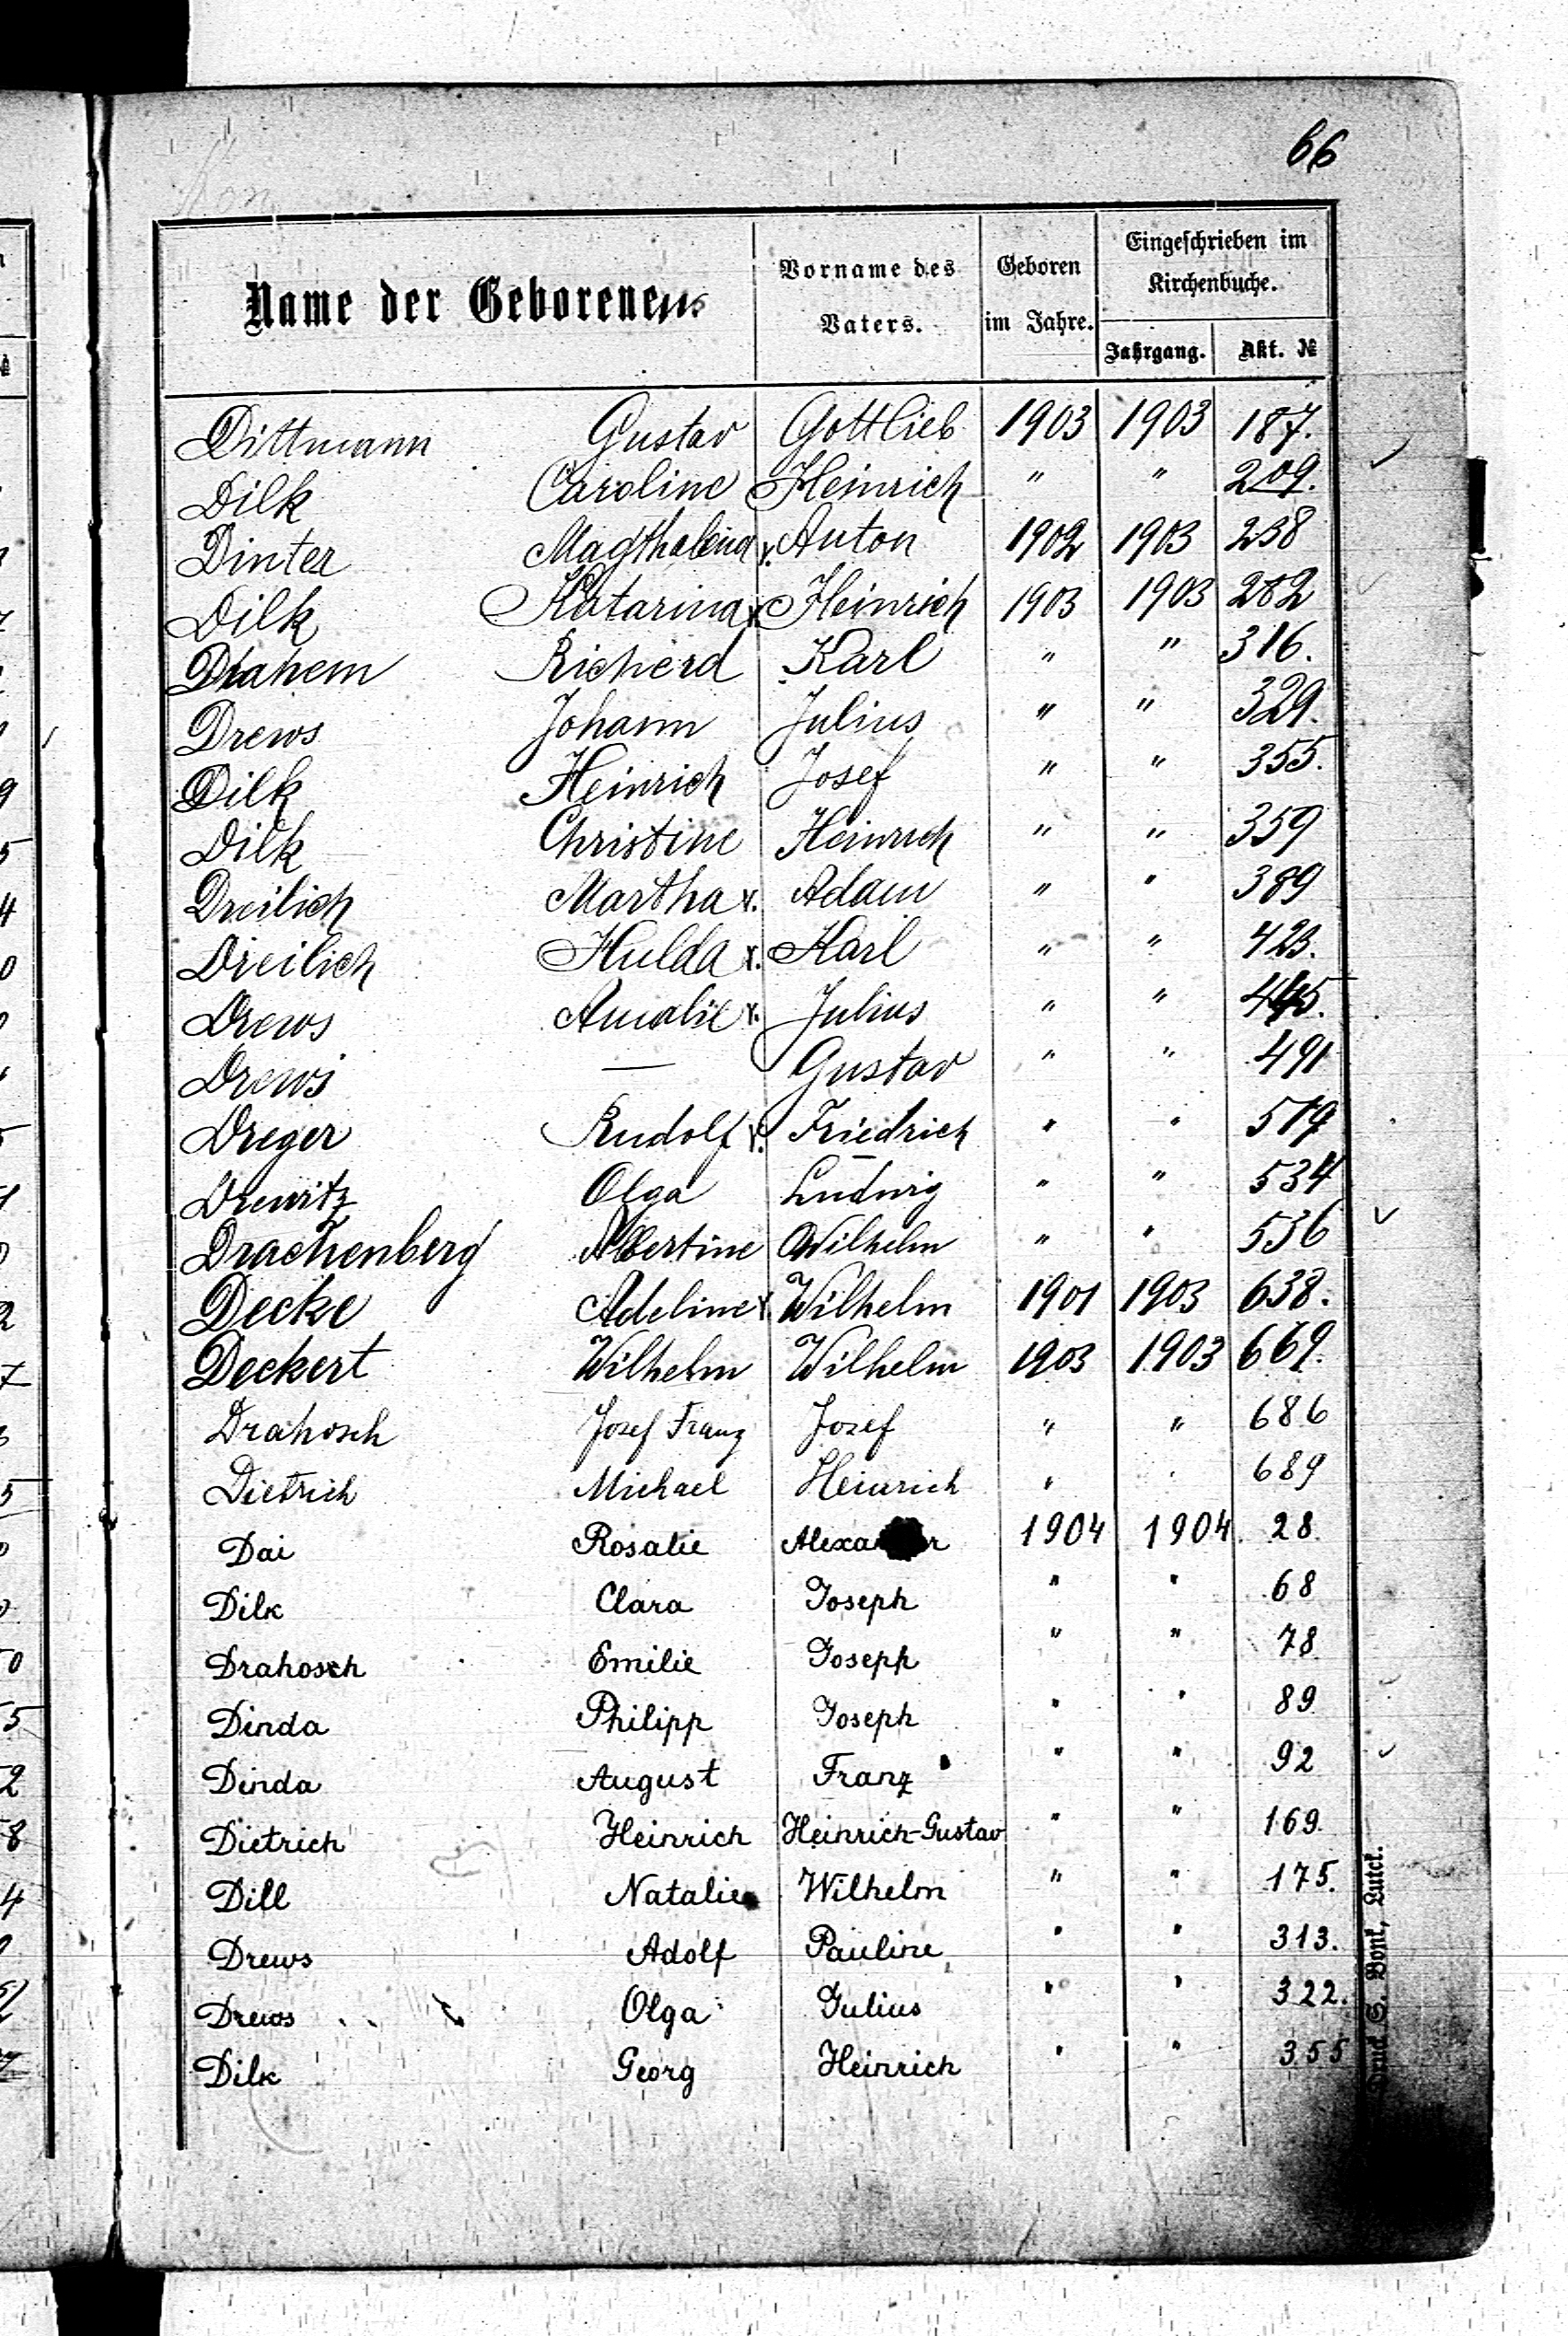 66
Name der Geborenen Vorname des Vaters. Geboren im Jahre. Eingeschrieben im Kirchenbuche.
Jahrgang. Akt. №
Dittmann Gustav Gottlieb 1903 1903 187.
Dilk Caroline Heinrich " " 209.
Dinter Magthalena x. Anton 1902 1903 238
Dilk Katarina x. Heinrich 1903 1903 282
Drahem Richerd Karl " " 316.
Drews Johann Julius " " 329.
Dilk Heinrich Josef " " 355.
Dilk Christine Heinrich " " 359
Dreilich Martha x. Adam " " 389
Dreilich Hulda x. Karl " " 423.
Drews Amalie x. Julius " " 445.
Drews — Gustav " " 491
Dreger Rudolf x. Friedrich " " 519
Drewitz Olga Ludwig " " 534
Drachenberg Albertine Wilhelm " " 536
Decke Adeline x. Wilhelm 1901 1903 638.
Deckert Wilhelm Wilhelm 1903 1903 669.
Drahosch Josef Franz Josef " " 686
Dietrich Michael Heinrich " " 689
Dai Rosalie 1904 1904. 28.
Dilk Clara Joseph " " 68
Drahosch Emilie Joseph " " 78
Dinda Philipp Joseph " " 89
Dinda August Franz " " 92
Dietrich Heinrich Heinrich-Gustav " " 169.
Dill Natalie Wilhelm " " 175.
Drews Adolf Pauline " " 313.
Drews Olga Julius " " 322.
Dilk Georg Heinrich " " 355